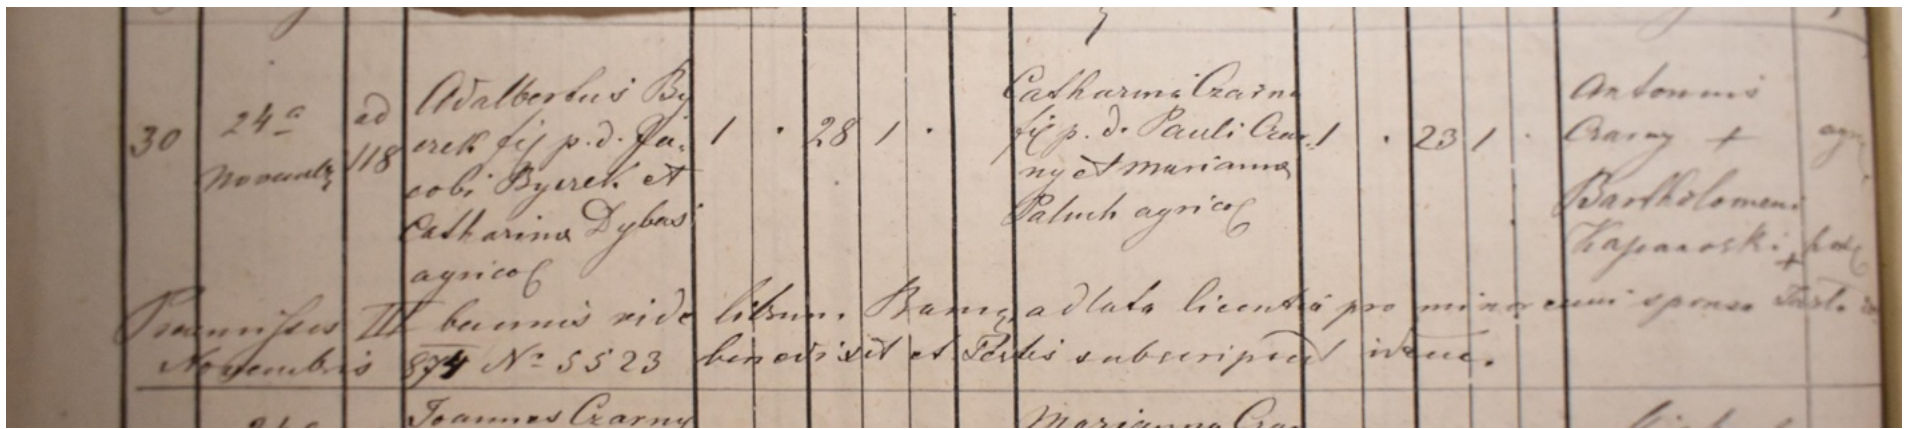 30 24ª Novembr ad 118
Adalbertus By
erek fij p. d. Ja.
cobi Byerek et
Catharina Dybas
agricol
1 · 28 1 ·
Catharina Czarna
fij p. d. Pauli Czar.
ny et Marianna
Paluch agricol
1 · 23 1 ·
Antonius
Czarny + agri
Bartholomeus
Kaparoski +
Praemissis III bannis vide librum. Bann. adlata licentia pro minorenni sponsa Tarto
Novembris 874 No 5523 benedixit et Testis subscripsit idem.
Joannes Czarny
Marianna Czar